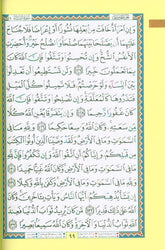 وَإِنِ ٱمْرَأَةٌ خَافَتْ مِنۢ بَعْلِهَا نُشُوزًا أَوْ إِعْرَاضًا فَلَا جُنَاحَ
عَلَيْهِمَآ أَن يُصْلِحَا بَيْنَهُمَا صُلْحًا وَٱلصُّلْحُ خَيْرٌ وَأُحْضِرَتِ
ٱلْأَنفُسُ ٱلشُّحَّ وَإِن تُحْسِنُوا۟ وَتَتَّقُوا۟ فَإِنَّ ٱللَّهَ كَانَ
بِمَا تَعْمَلُونَ خَبِيرًا ١٢٨ وَلَن تَسْتَطِيعُوٓا۟ أَن تَعْدِلُوا۟
بَيْنَ ٱلنِّسَآءِ وَلَوْ حَرَصْتُمْ فَلَا تَمِيلُوا۟ كُلَّ ٱلْمَيْلِ
فَتَذَرُوهَا كَٱلْمُعَلَّقَةِ وَإِن تُصْلِحُوا۟ وَتَتَّقُوا۟ فَإِنَّ ٱللَّهَ
كَانَ غَفُورًا رَّحِيمًا ١٢٩ وَإِن يَتَفَرَّقَا يُغْنِ ٱللَّهُ كُلًّا
مِّن سَعَتِهِۦ وَكَانَ ٱللَّهُ وَٰسِعًا حَكِيمًا ١٣٠ وَلِلَّهِ
مَا فِى ٱلسَّمَٰوَٰتِ وَمَا فِى ٱلْأَرْضِ وَلَقَدْ وَصَّيْنَا ٱلَّذِينَ أُوتُوا۟ ٱلْكِتَٰبَ
مِن قَبْلِكُمْ وَإِيَّاكُمْ أَنِ ٱتَّقُوا۟ ٱللَّهَ وَإِن تَكْفُرُوا۟ فَإِنَّ لِلَّهِ
مَا فِى ٱلسَّمَٰوَٰتِ وَمَا فِى ٱلْأَرْضِ وَكَانَ ٱللَّهُ غَنِيًّا حَمِيدًا ١٣١
وَلِلَّهِ مَا فِى ٱلسَّمَٰوَٰتِ وَمَا فِى ٱلْأَرْضِ وَكَفَىٰ بِٱللَّهِ وَكِيلًا ١٣٢
إِن يَشَأْ يُذْهِبْكُمْ أَيُّهَا ٱلنَّاسُ وَيَأْتِ بِـَٔاخَرِينَ وَكَانَ ٱللَّهُ
عَلَىٰ ذَٰلِكَ قَدِيرًا ١٣٣ مَّن كَانَ يُرِيدُ ثَوَابَ ٱلدُّنْيَا فَعِندَ
ٱللَّهِ ثَوَابُ ٱلدُّنْيَا وَٱلْـَٔاخِرَةِ وَكَانَ ٱللَّهُ سَمِيعًۢا بَصِيرًا ١٣٤
٩٩